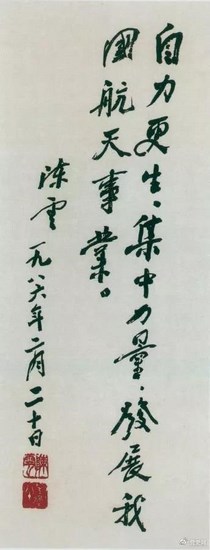 自力更生、集中力量、發展我
國航天事業。
陈云 一九八六年二月二十日